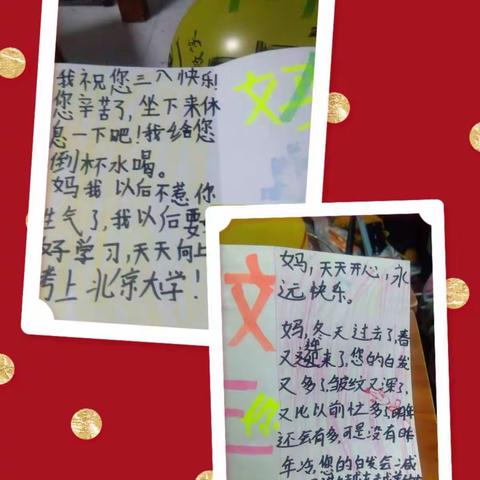 我祝您三八快乐!
您辛苦了,坐下来休
息一下吧!我给您
倒杯水喝。
妈我以后不惹你
生气了,我以后要
好学习,天天向上
考上北京大学!
妈,天天开心,永
远快乐。
妈,冬天过去了,春
又迎来了,您的白发
又多了,皱纹又深了,
又比以前忙多了,明年
还会有多,可是没有昨
年冷,您的白发会减